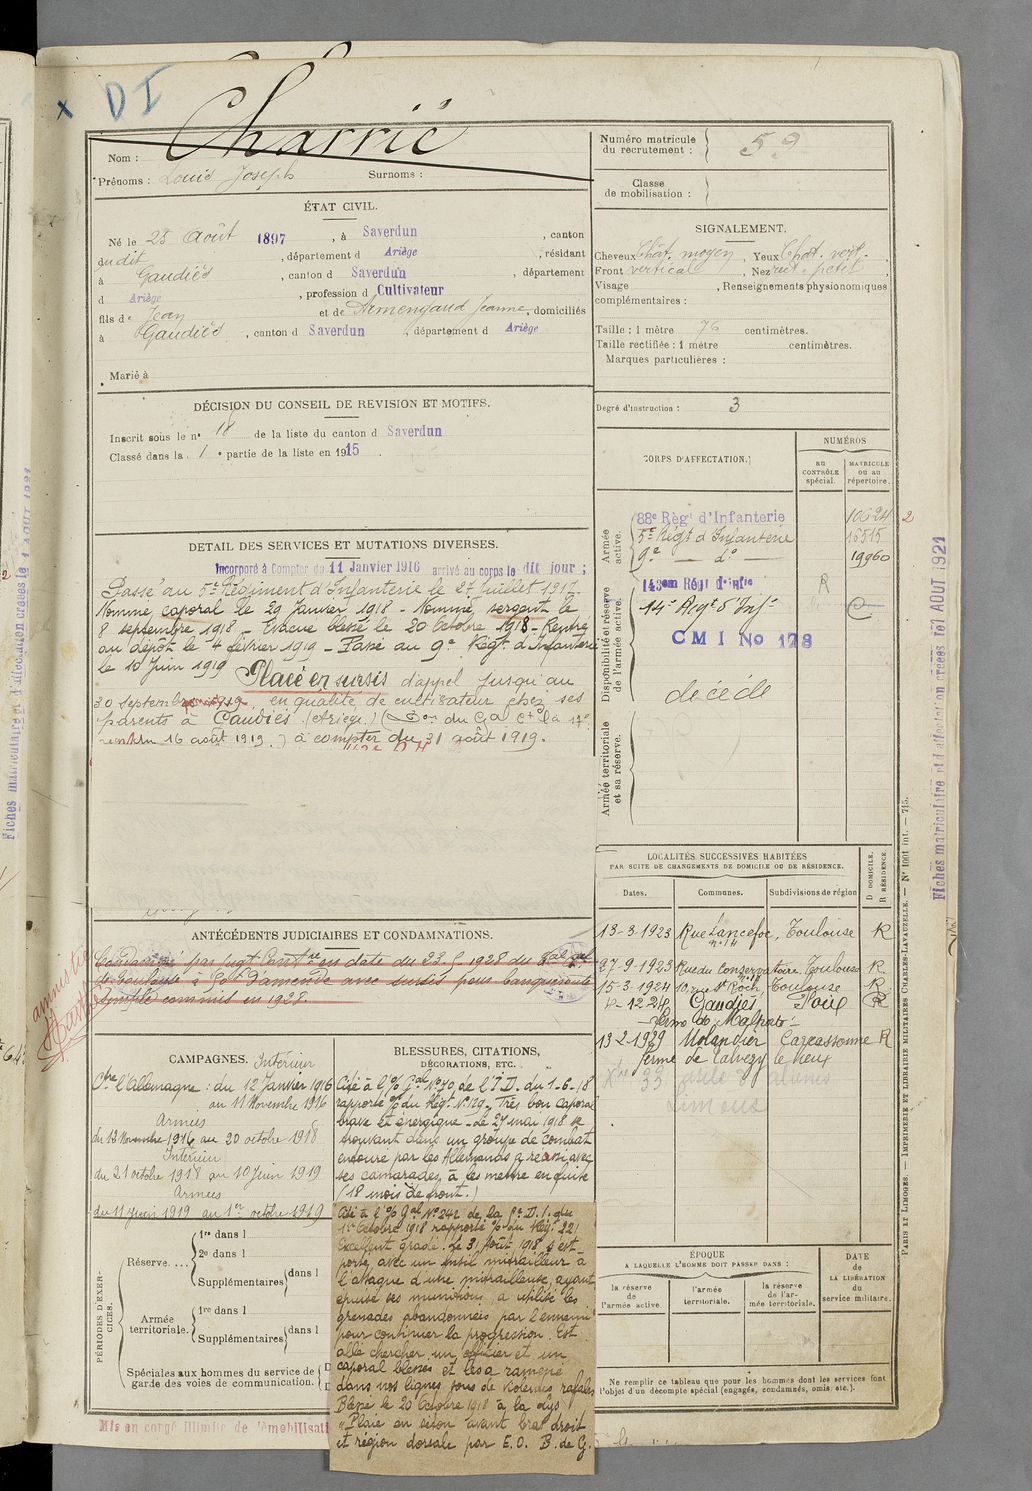 x DI
Charrié
Nom :
Prénoms : Louis Joseph Surnoms :
Numéro matricule
du recrutement : 59
Classe
de mobilisation :
ÉTAT CIVIL.
Né le 28 Août 1897, à Saverdun, canton
du dit, département d Ariège, résidant
à Gaudiès, canton d Saverdun, département
d Ariège, profession d Cultivateur
fils de Jean et de Armengaud Jeanne, domiciliés
à Gaudiès, canton d Saverdun, département d Ariège
Marié à
SIGNALEMENT.
Cheveux Chât. moyen, Yeux Chat. vert.
Front vertical, Nez rect. petit
Visage , Renseignements physionomiques
complémentaires :
Taille : 1 mètre 76 centimètres.
Taille rectifiée : 1 mètre centimètres.
Marques particulières :
Degré d'instruction : 3
DÉCISION DU CONSEIL DE REVISION ET MOTIFS.
Inscrit sous le n° 18 de la liste du canton d Saverdun
Classé dans la 1 e partie de la liste en 1915.
DETAIL DES SERVICES ET MUTATIONS DIVERSES.
Incorporé à Compter du 11 Janvier 1916 arrivé au corps le dit jour ;
Passé au 5e Régiment d'Infanterie le 27 Juillet 1917.
Nommé caporal le 29 Janvier 1918 - Nommé sergent le
8 septembre 1918 - Evacué blessé le 20 Octobre 1918 - Rentré
au dépôt le 4 février 1919 - Passé au 9e Régt d'Infanterie
le 10 Juin 1919 Placé en sursis d'appel jusqu'au
30 septembre 1919 en qualité de cultivateur chez ses
parents à Gaudiès (Ariège) du Gal Ct la 17e
16 août 1919.) à compter du 31 août 1919.
CORPS D'AFFECTATION.
NUMÉROS
AU
CONTRÔLE
spécial.
MATRICULE
ou au
répertoire.
Armée
active.
88e Régt d'Infanterie 10624 2
5e Régt d'Infanterie 16515
9e — do — 19960
Disponibilité et réserve
de l'armée active.
143em Régt d'Infie R
14e Régt d'Infie
CMI No 178
décédé
Armée territoriale
et sa réserve.
LOCALITÉS SUCCESSIVES HABITÉES
PAR SUITE DE CHANGEMENTS DE DOMICILE OU DE RÉSIDENCE.
Dates. Communes. Subdivisions de région
D DOMICILE.
R RÉSIDENCE.
13-3-1923 Rue Lancefoc, Toulouse R
n° 14
27-9-1923 Rue du Conservatoire, Toulouse R
15-3-1924 10, rue St Roch, Toulouse R
4-12-24 Gaudiès Foix R
13-2-1929 Molandier Carcassonne R
ferme de le vieux
Limoux
ANTÉCÉDENTS JUDICIAIRES ET CONDAMNATIONS.
Condamné par jugt Contre en date du 23.5.1928 du
de Toulouse à d'amende avec sursis pour banqueroute
simple commis en 1928.
amnistié
CAMPAGNES. Intérieur
Ctre l'Allemagne : du 12 Janvier 1916
au 11 Novembre 1916
Armées
du 12 Novembre 1916 au 20 octobre 1918
Intérieur
du 21 octobre 1918 au 10 Juin 1919
Armées
du 11 Juin 1919 au 1er octobre 1919
BLESSURES, CITATIONS,
DÉCORATIONS, ETC.
Cité à l'O/ Gal N° 70 de l'I.D. du 1-6-18
rapporté O/ du Régt N° 129. Très bon caporal
brave et énergique - Le 27 mai 1918 se
trouvant dans un groupe de combat
entouré par les Allemands a réussi avec
ses camarades, à les mettre en fuite
(18 mois de front.)
Cité à l'O/ Gal N° 242 de la D.I. du
1er Octobre 1918 rapporté O/ du Régt 221
Excellent gradé. Le 31 Août 1918 s'est
porté, avec un fusil mitrailleur à
l'attaque d'une mitrailleuse, ayant
épuisé ses munitions, a utilisé les
grenades abandonnées par l'ennemi
pour continuer la progression. Est
allé chercher un officier et un
caporal blessés et les a ramené
dans nos lignes sous de violentes rafales
Blessé le 20 Octobre 1918 à la Lys
"Plaie en séton avant bras droit
et région dorsale par E.O. B. de G.
PÉRIODES D'EXER-
CICES.
Réserve....
1re dans l
2e dans l
Supplémentaires dans l
Armée
territoriale.
1re dans l
Supplémentaires dans l
Spéciales aux hommes du service de
garde des voies de communication.
ÉPOQUE
A LAQUELLE L'HOMME DOIT PASSER DANS :
la réserve
de
l'armée active.
l'armée
territoriale.
la réserve
de l'ar-
mée territoriale.
DATE
de
LA LIBÉRATION
du
service militaire.
Ne remplir ce tableau que pour les hommes dont les services font
l'objet d'un décompte spécial (engagés, condamnés, omis, etc.).
Mis en congé illimité de démobilisati
PARIS ET LIMOGES. — IMPRIMERIE ET LIBRAIRIE MILITAIRES CHARLES-LAVAUZELLE. — N° 1001 int. — 715.
Fiches matriculaire et d'affectation créées le 1 AOUT 1921
Fiches matriculaire et d'affectation créées le 1 AOUT 1921